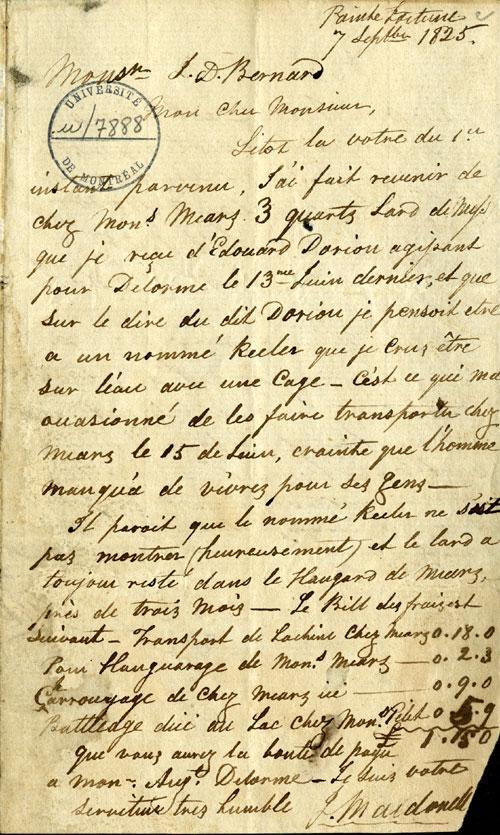 Pointe Fortune
7 Septbre 1825.
Monsr J. D. Bernard
UNIVERSITÉ DE MONTRÉAL
w/7888
Mon cher Monsieur,
Sitot la votre du 1er
instant parvenu, J'ai fait revenir de
chez Mons Mears 3 quarts Lard de Mess
que je reçu d'Edouard Dorion agissant
pour Delorme le 13me Juin dernier, et que
sur le dire du dit Dorion je pensoit etre
a un nommé Keeler que je crus être
sur l'eau avec une Cage – C'est ce qui m'a
ocasionné de les faire transporter chez
Mears le 15 de Juin, crainte que l'homme
manqua de vivres pour ses Gens –
Il paroit que le nommé Keeler ne s'est
pas montrer (heureusement) et le lard a
toujour resté dans le Hangard de Mears,
près de trois Mois – Le Bill des fraix est
suivant – Transport de Lachine chez Mears 0.18.0
Pour Hanguarage de Mons Mears – 0.2.3
Carrouyage de chez Mears ici – 0.9.0
Battleage d'ici au Lac chez Mons Petit 0 5.9
1.15.0
que vous aurez la bonté de payer
a Monr. Augt. Delorme – Je suis votre
serviteur tres humble J. Macdonell